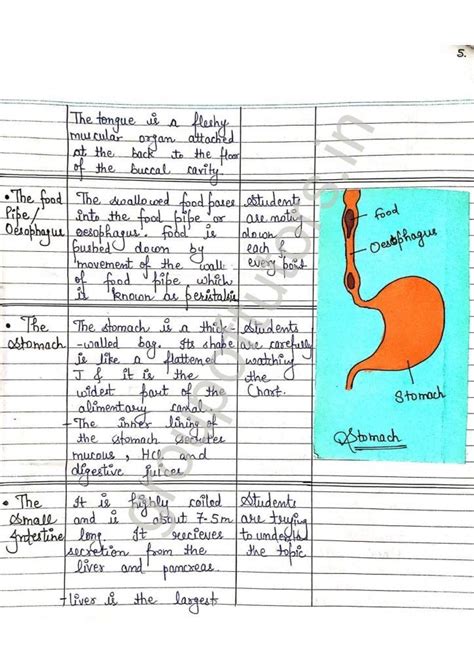 5.
The tongue is a fleshy
muscular organ attached
at the back to the floor
of the buccal cavity.
• The food
Pipe/
Oesophagus
The swallowed food passes
into the food pipe or
oesophagus. food is
pushed down by
movement of the wall
of food pipe which
is known as peristalsis
Students
are noting
down
each &
every point
food
Oesophagus
Stomach
Stomach
• The
Stomach
The stomach is a thick-
-walled bag. Its shape
is like a flattened
J & it is the
widest part of the
alimentary canal.
- The inner lining of
the stomach secretes
mucous, HCl and
digestive juices
Students
are carefully
watching
the
Chart.
• The
Small
Intestine
It is highly coiled
and is about 7.5m
long. It recieves
secretion from the
liver and pancreas.
- liver is the largest
Students
are trying
to understand
the topic
groupoftutors.in